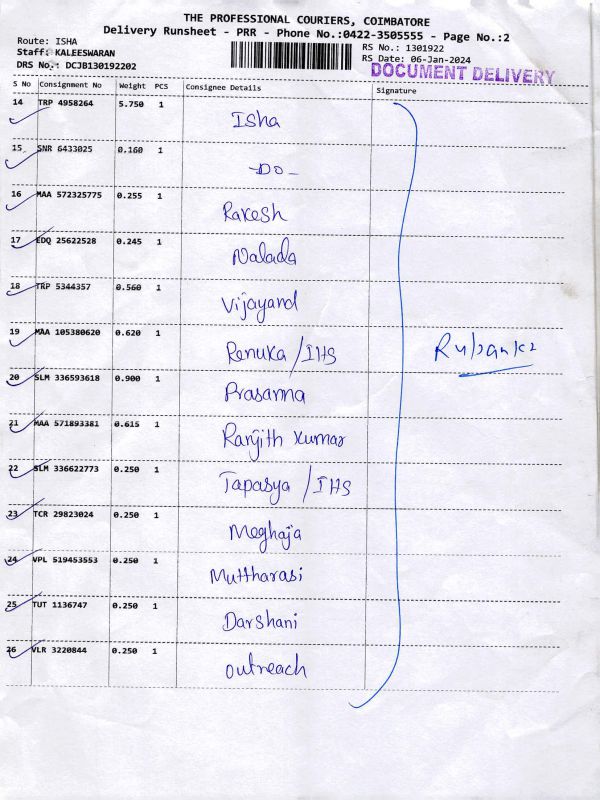 THE PROFESSIONAL COURIERS, COIMBATORE
Delivery Runsheet - PRR - Phone No.:0422-3505555 - Page No.:2
Route: ISHA
Staff: KALEESWARAN
DRS No.: DCJB130192202
RS No.: 1301922
RS Date: 06-Jan-2024
DOCUMENT DELIVERY
S No Consignment No Weight PCS Consignee Details Signature
14 TRP 4958264 5.750 1 Isha
15 SNR 6433025 0.160 1 -DO-
16 MAA 572325775 0.255 1 Rakesh
17 EDQ 25622528 0.245 1 Nalada
18 TRP 5344357 0.560 1 Vijayand
19 MAA 105380620 0.620 1 Renuka /IHS
20 SLM 336593618 0.900 1 Prasanna
21 MAA 571893381 0.615 1 Ranjith Kumar
22 SLM 336622773 0.250 1 Tapasya /IHS
23 TCR 29823024 0.250 1 Meghaja
24 VPL 519453553 0.250 1 Muttharasi
25 TUT 1136747 0.250 1 Darshani
26 VLR 3220844 0.250 1 outreach